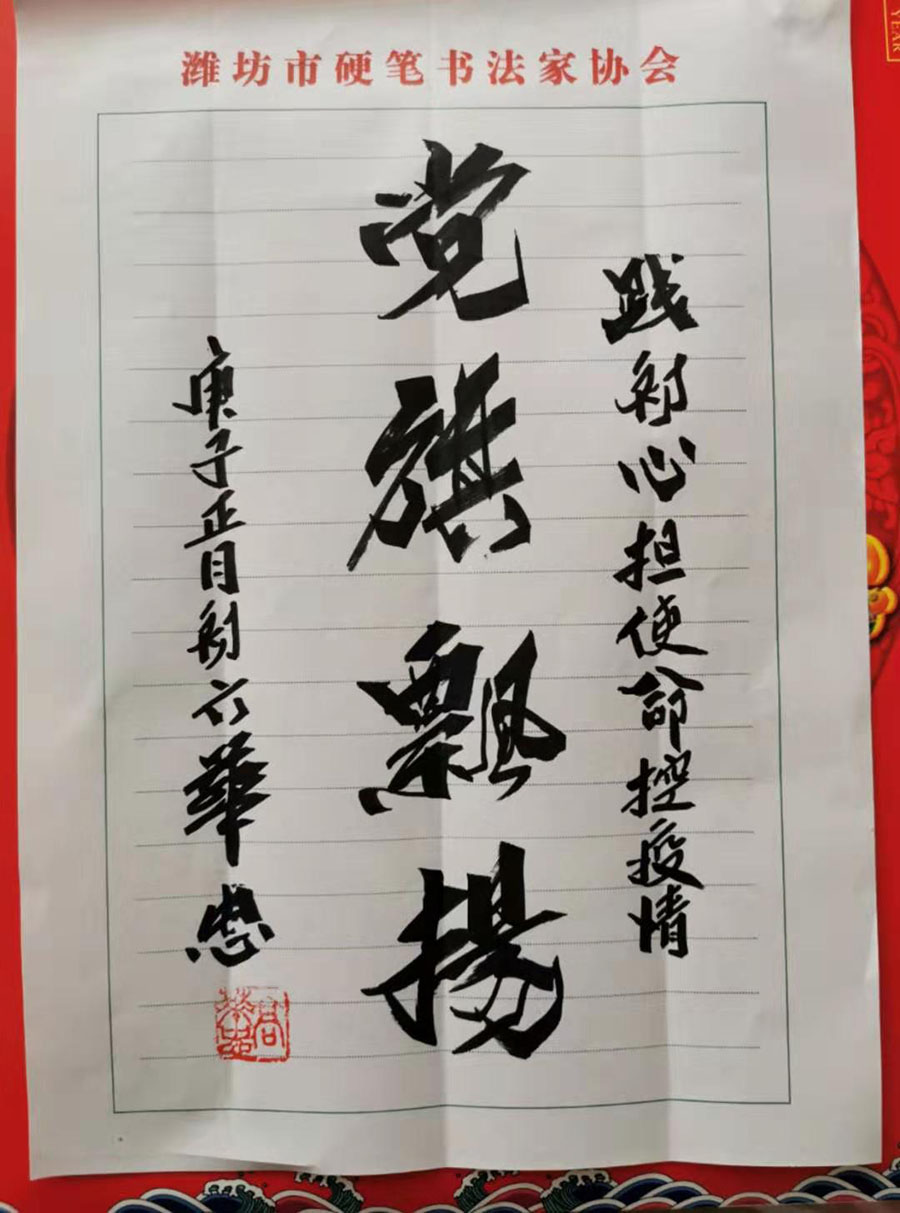 潍坊市硬笔书法家协会
践初心担使命控疫情
党旗飘揚
庚子正月初六華忠
高華忠
YEAR